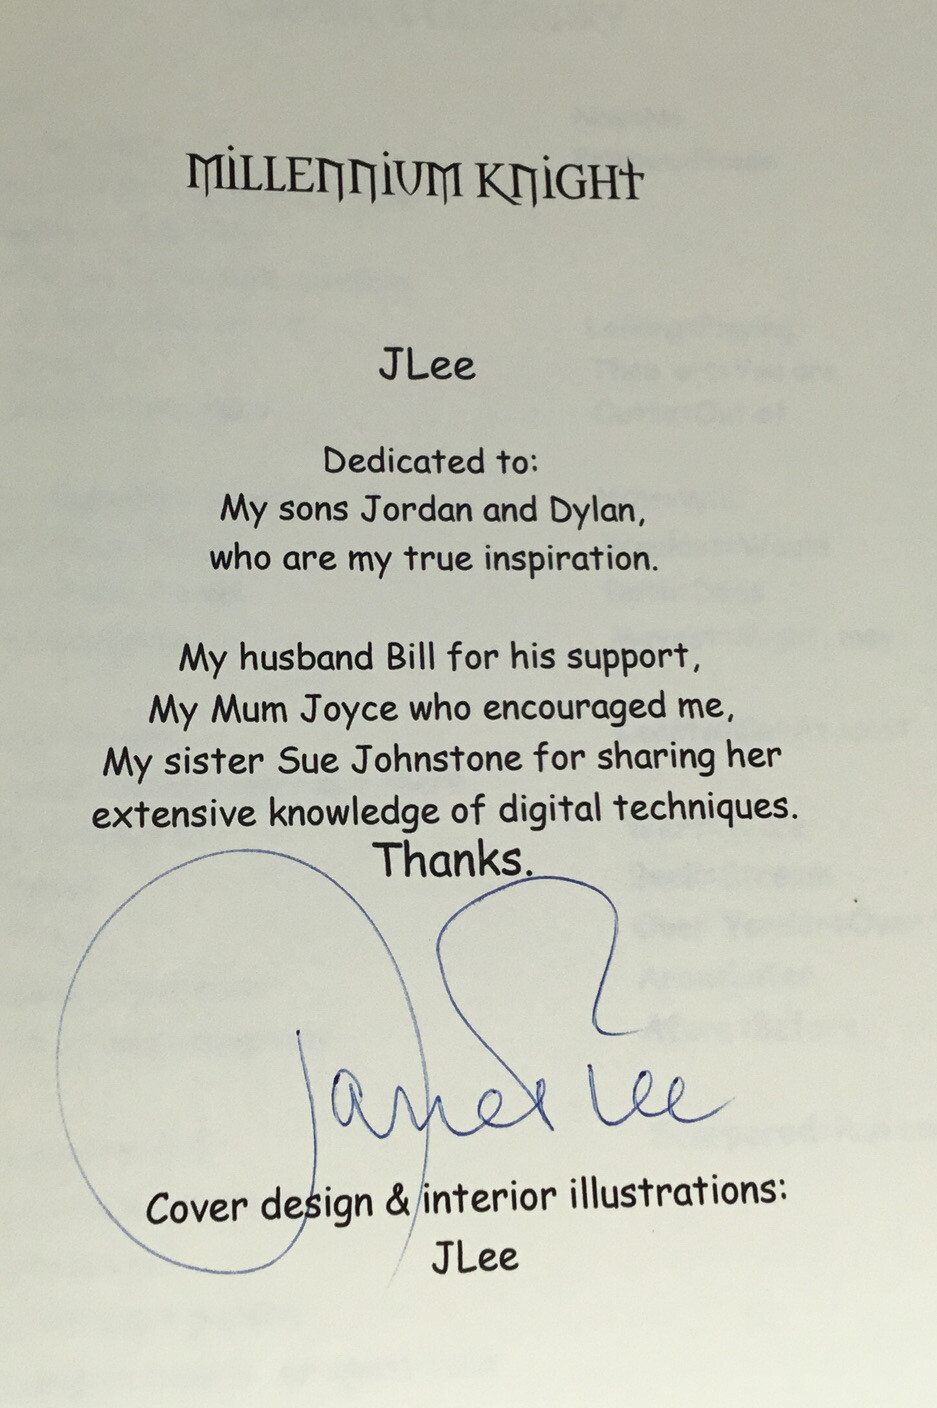 MiLLENNiUM KNiGHt
JLee
Dedicated to:
My sons Jordan and Dylan,
who are my true inspiration.
My husband Bill for his support,
My Mum Joyce who encouraged me,
My sister Sue Johnstone for sharing her
extensive knowledge of digital techniques.
Thanks.
Janet Lee
Cover design & interior illustrations:
JLee